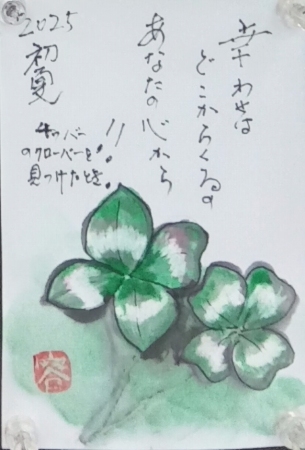 幸わせは
どこからくるの
あなたの心から
!!
2025
初夏
4ッバー
のクローバーを
見つけたとき!